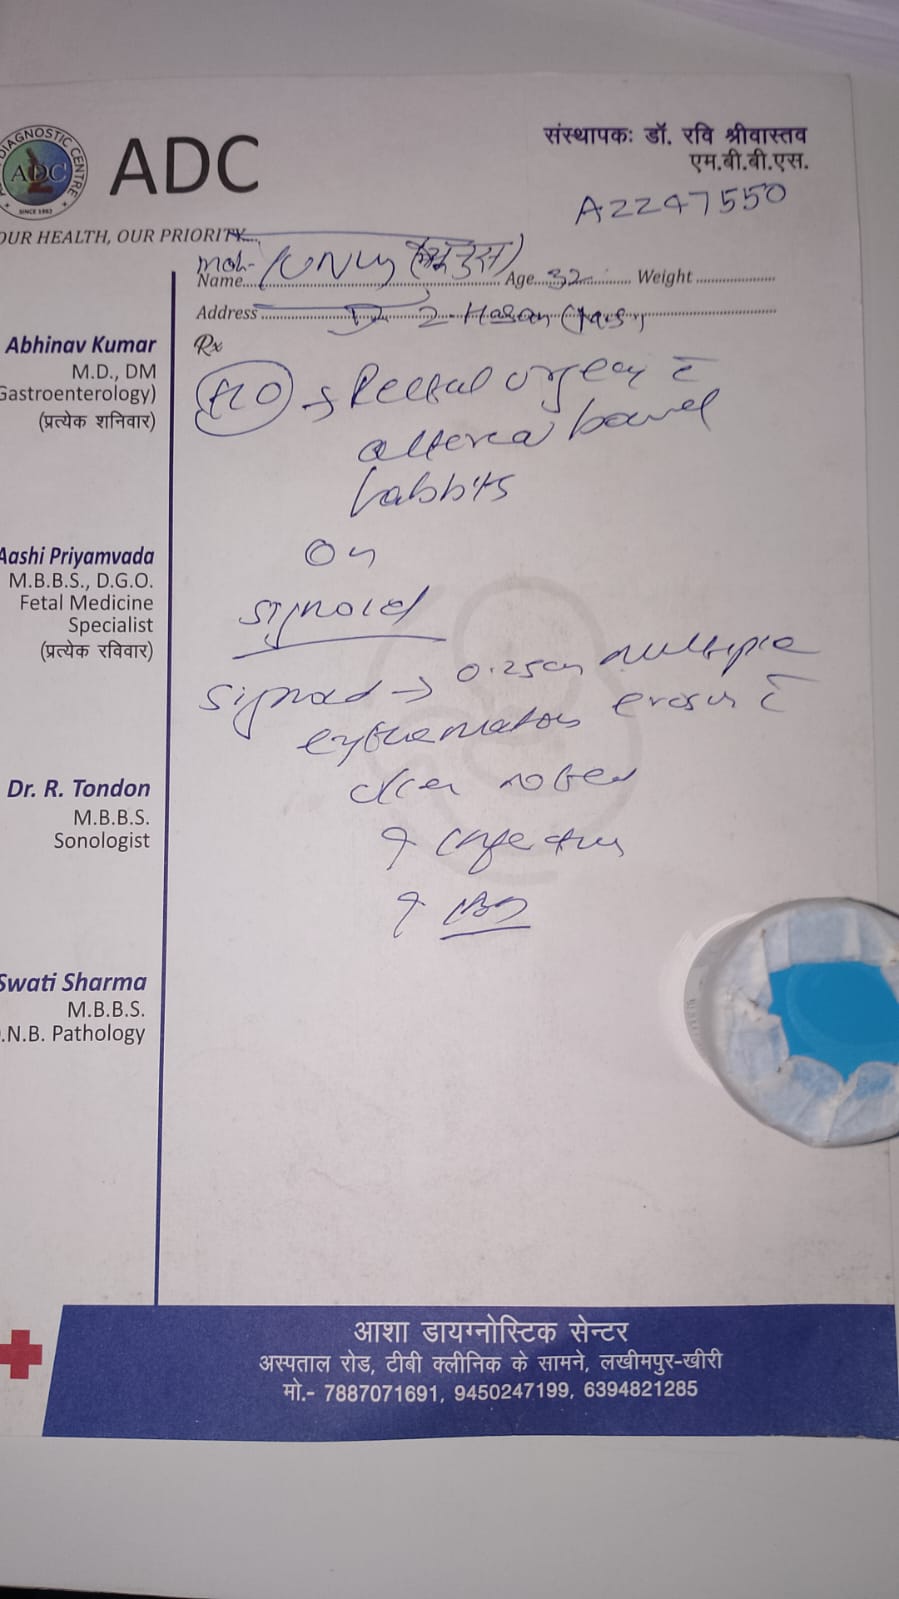 DIAGNOSTIC CENTRE
ADC
SINCE 1992
ADC
OUR HEALTH, OUR PRIORITY
संस्थापक: डॉ. रवि श्रीवास्तव
एम.बी.बी.एस.
A2247550
Name Moh- Age 32 Weight
Address Dr Z Hasan
Rx
Abhinav Kumar
M.D., DM
Gastroenterology)
(प्रत्येक शनिवार)
H/O → Rectal urgency c̄
altered bowel
habbits
On
sigmoid
Aashi Priyamvada
M.B.B.S., D.G.O.
Fetal Medicine
Specialist
(प्रत्येक रविवार)
sigmoid → 0.25cm multiple
erythematous erosion c̄
ulcer noted
? infectious
? IBD
Dr. R. Tondon
M.B.B.S.
Sonologist
Swati Sharma
M.B.B.S.
.N.B. Pathology
आशा डायग्नोस्टिक सेन्टर
अस्पताल रोड, टीबी क्लीनिक के सामने, लखीमपुर-खीरी
मो.- 7887071691, 9450247199, 6394821285